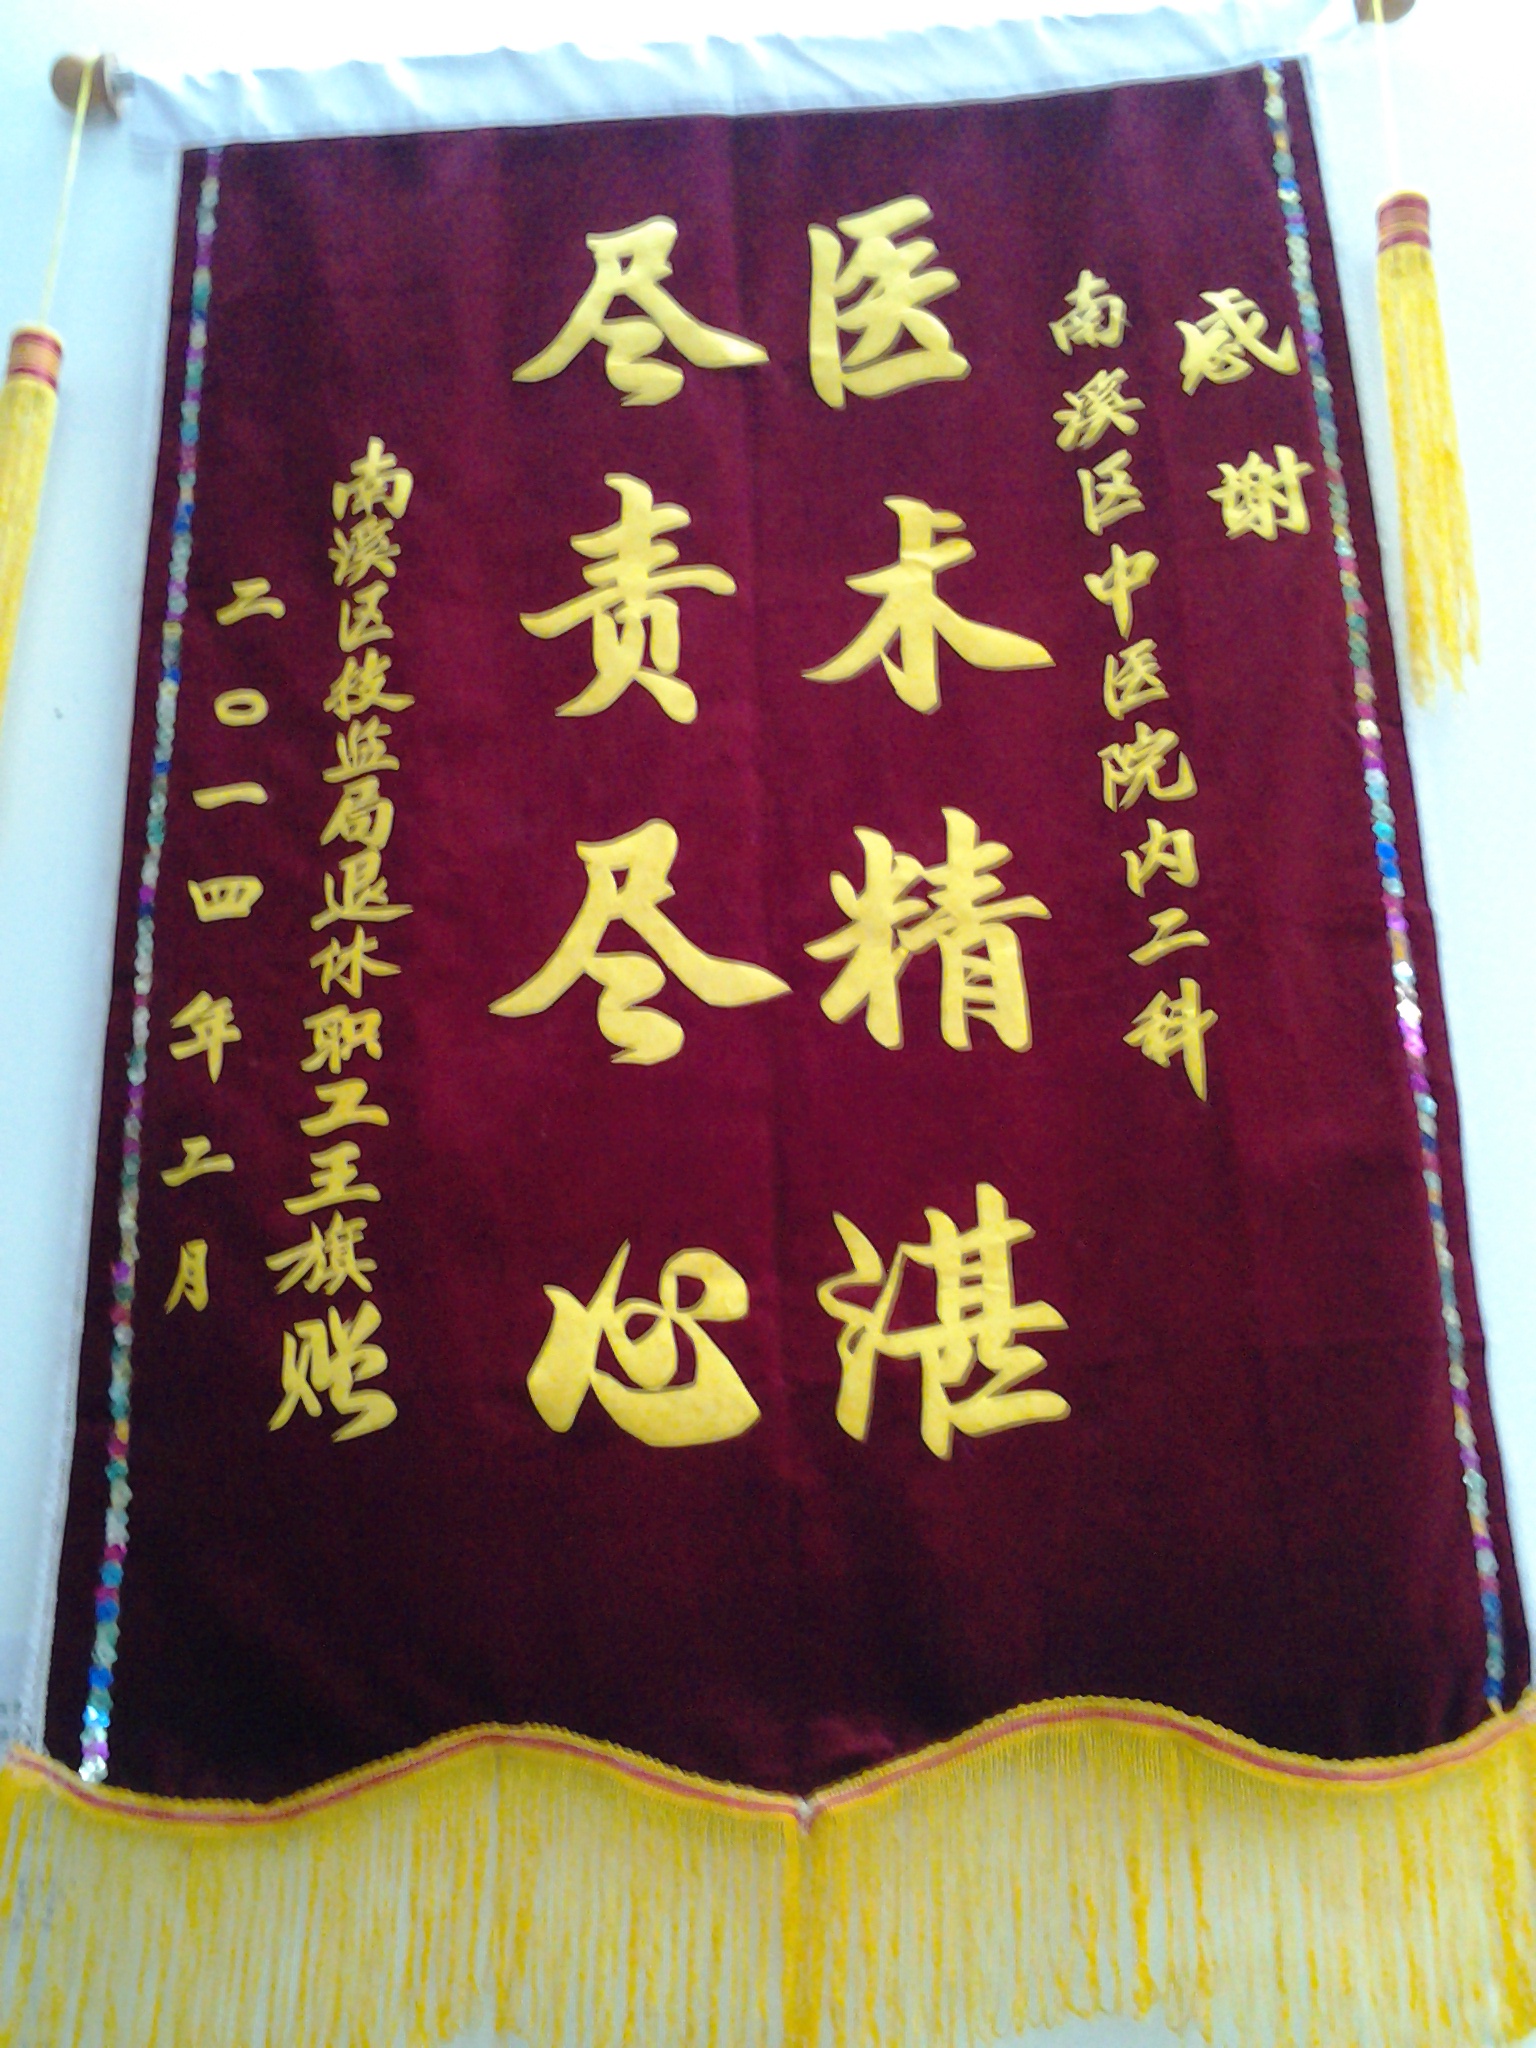 感谢
南溪区中医院内二科
医术精湛
尽责尽心
南溪区技监局退休职工王旗赠
二〇一四年二月